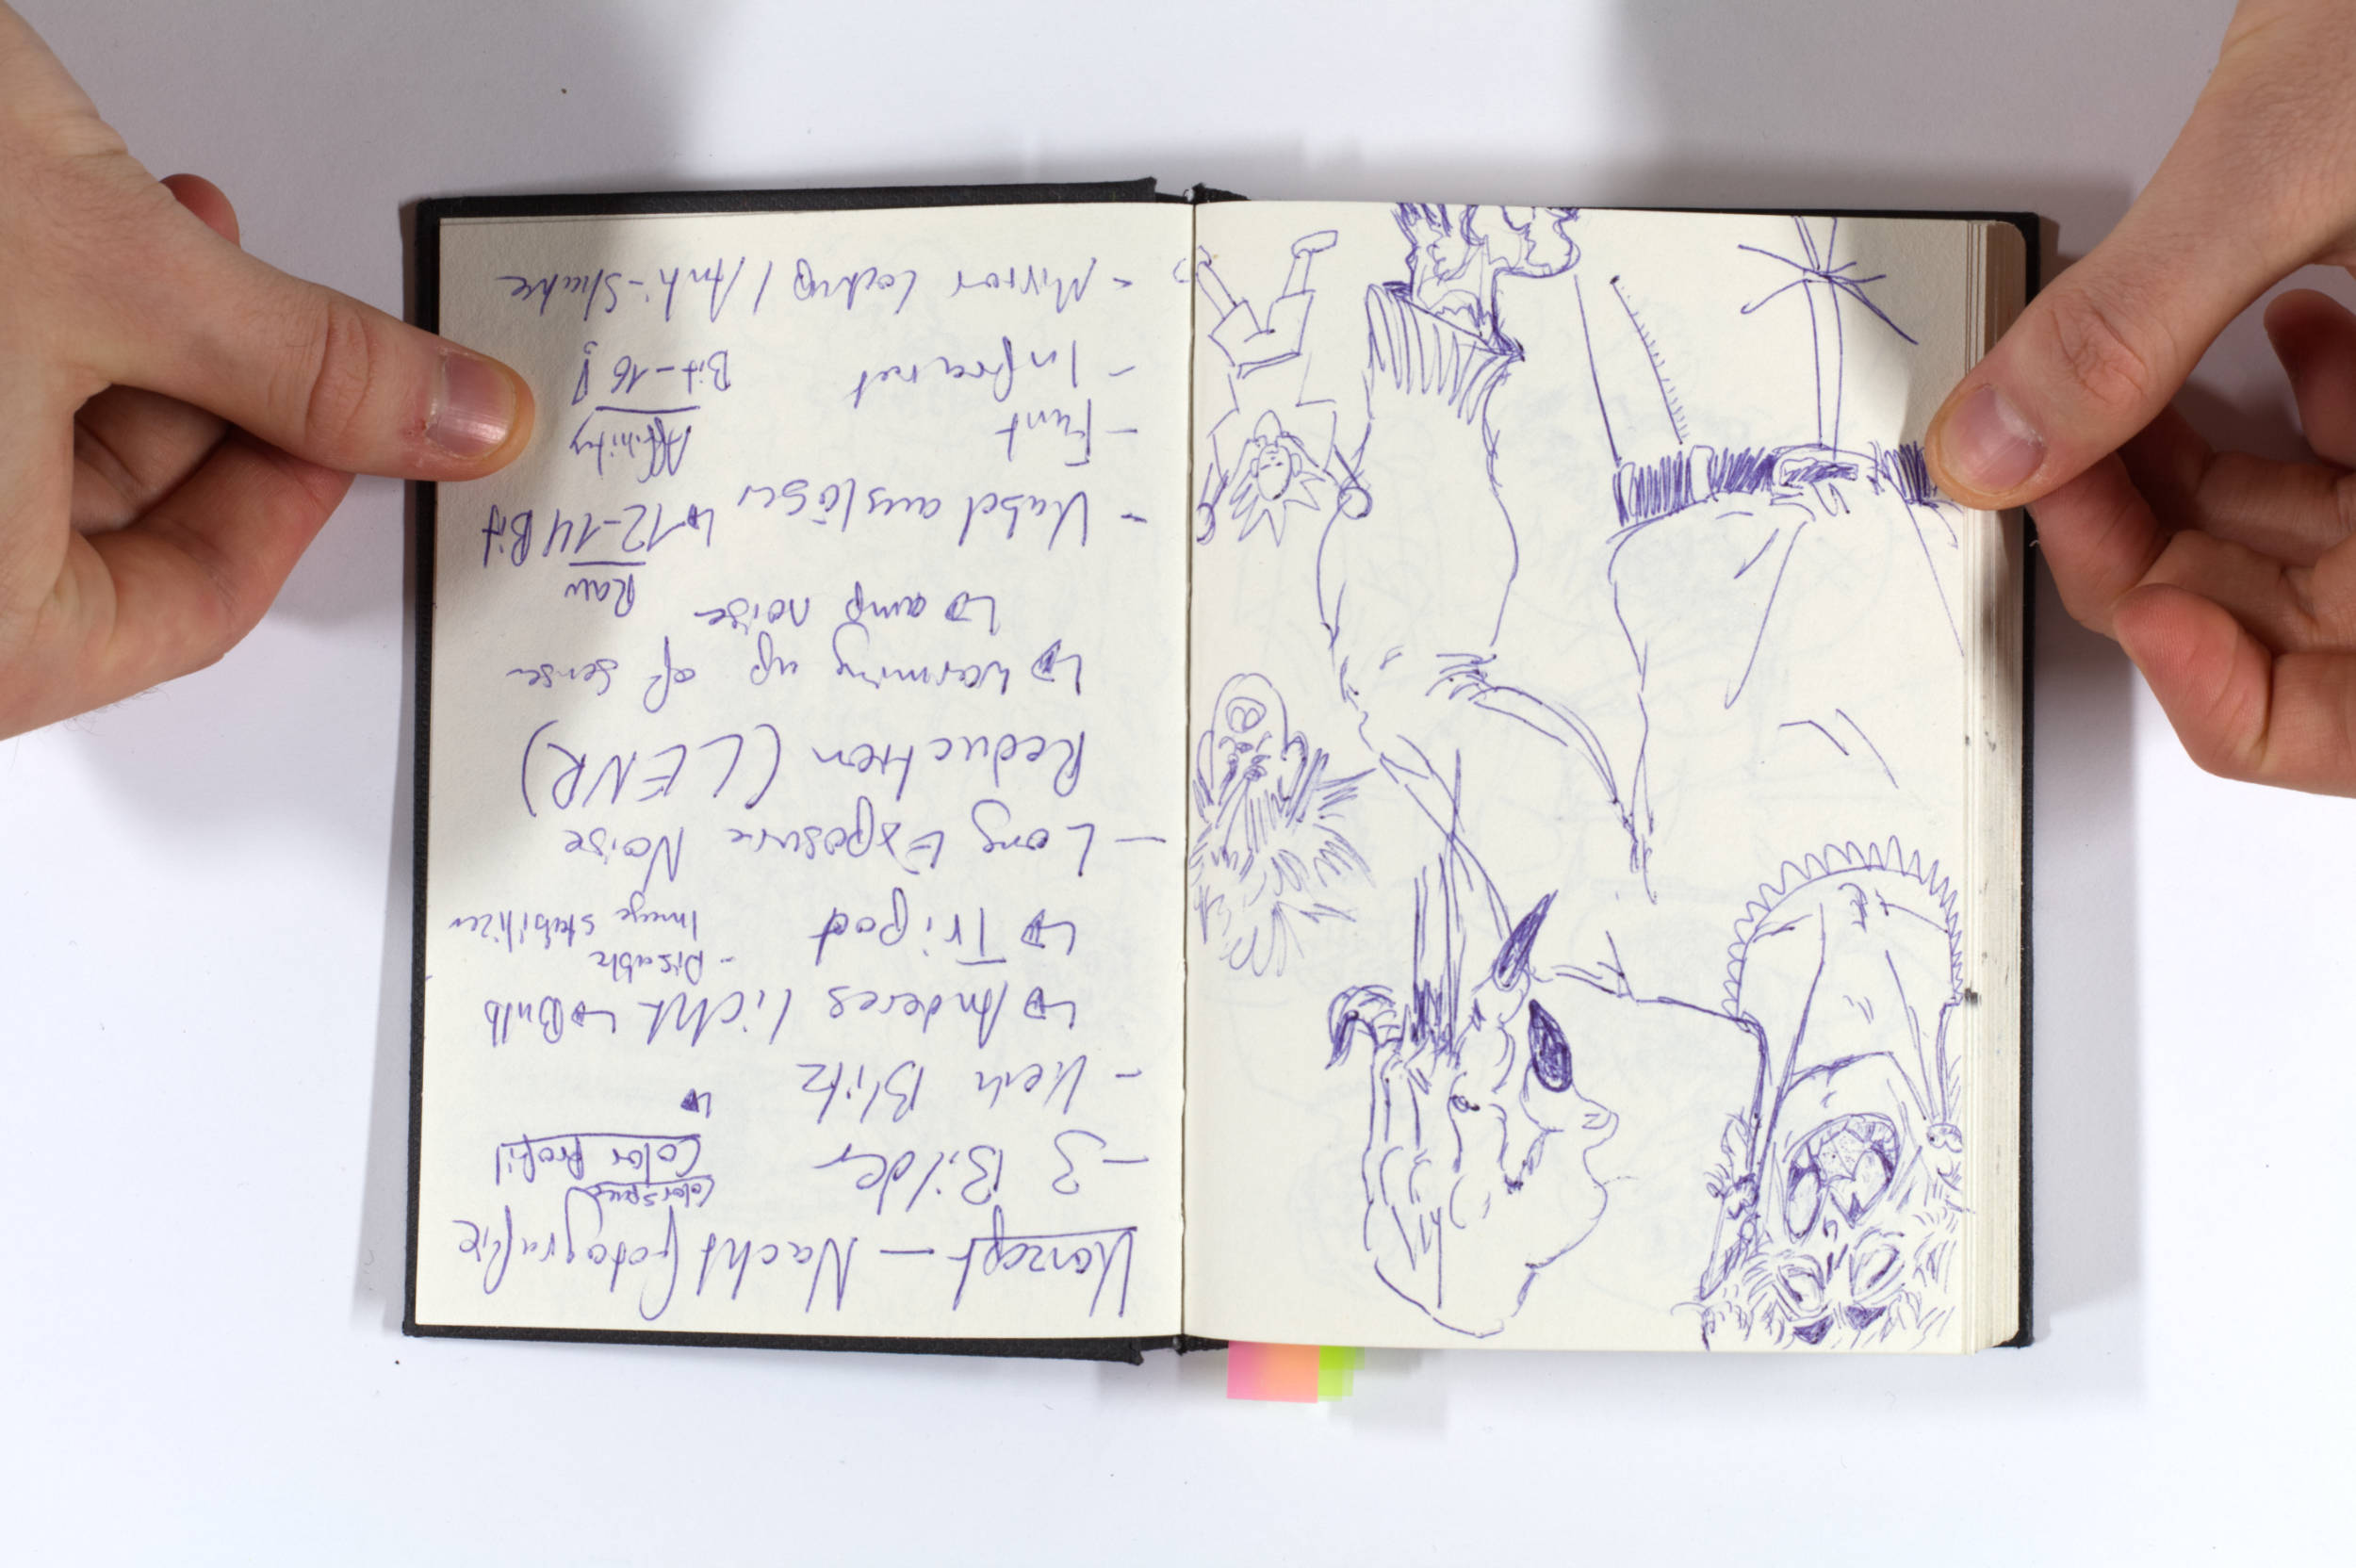 Konzept — Nachtfotografie
- 3 Bilder
Colorspace
Color Profil
- Kein Blitz
↳ Anderes licht ↳ Bulb
↳ Tripod
- Disable
Image stabilizer
- Long Exposure Noise
Reduction (LENR)
↳ warming up of sensor
↳ amp noise
Raw
- Kabelauslöser ↳ 12-14 Bit
- Funk
Affinity
- Infrarot
Bit-16!
- Mirror Lockup / Anti-Shake